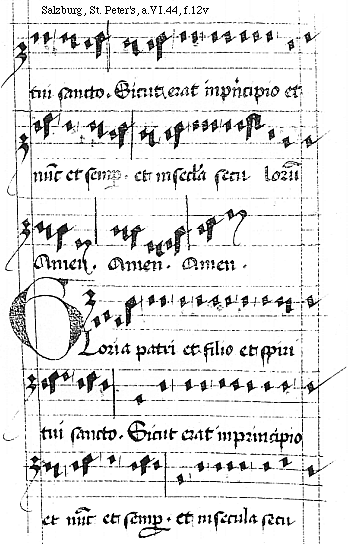 Salzburg, St. Peter's, a.VI.44, f.12v
tui sancto. Sicut erat inpncipio et
nuc et semp. et insecla secu loru
Amen. Amen. Amen.
Gloria patri et filio et spiri
tui sancto. Sicut erat inprincipio
et nuc et semp. et insecula secu